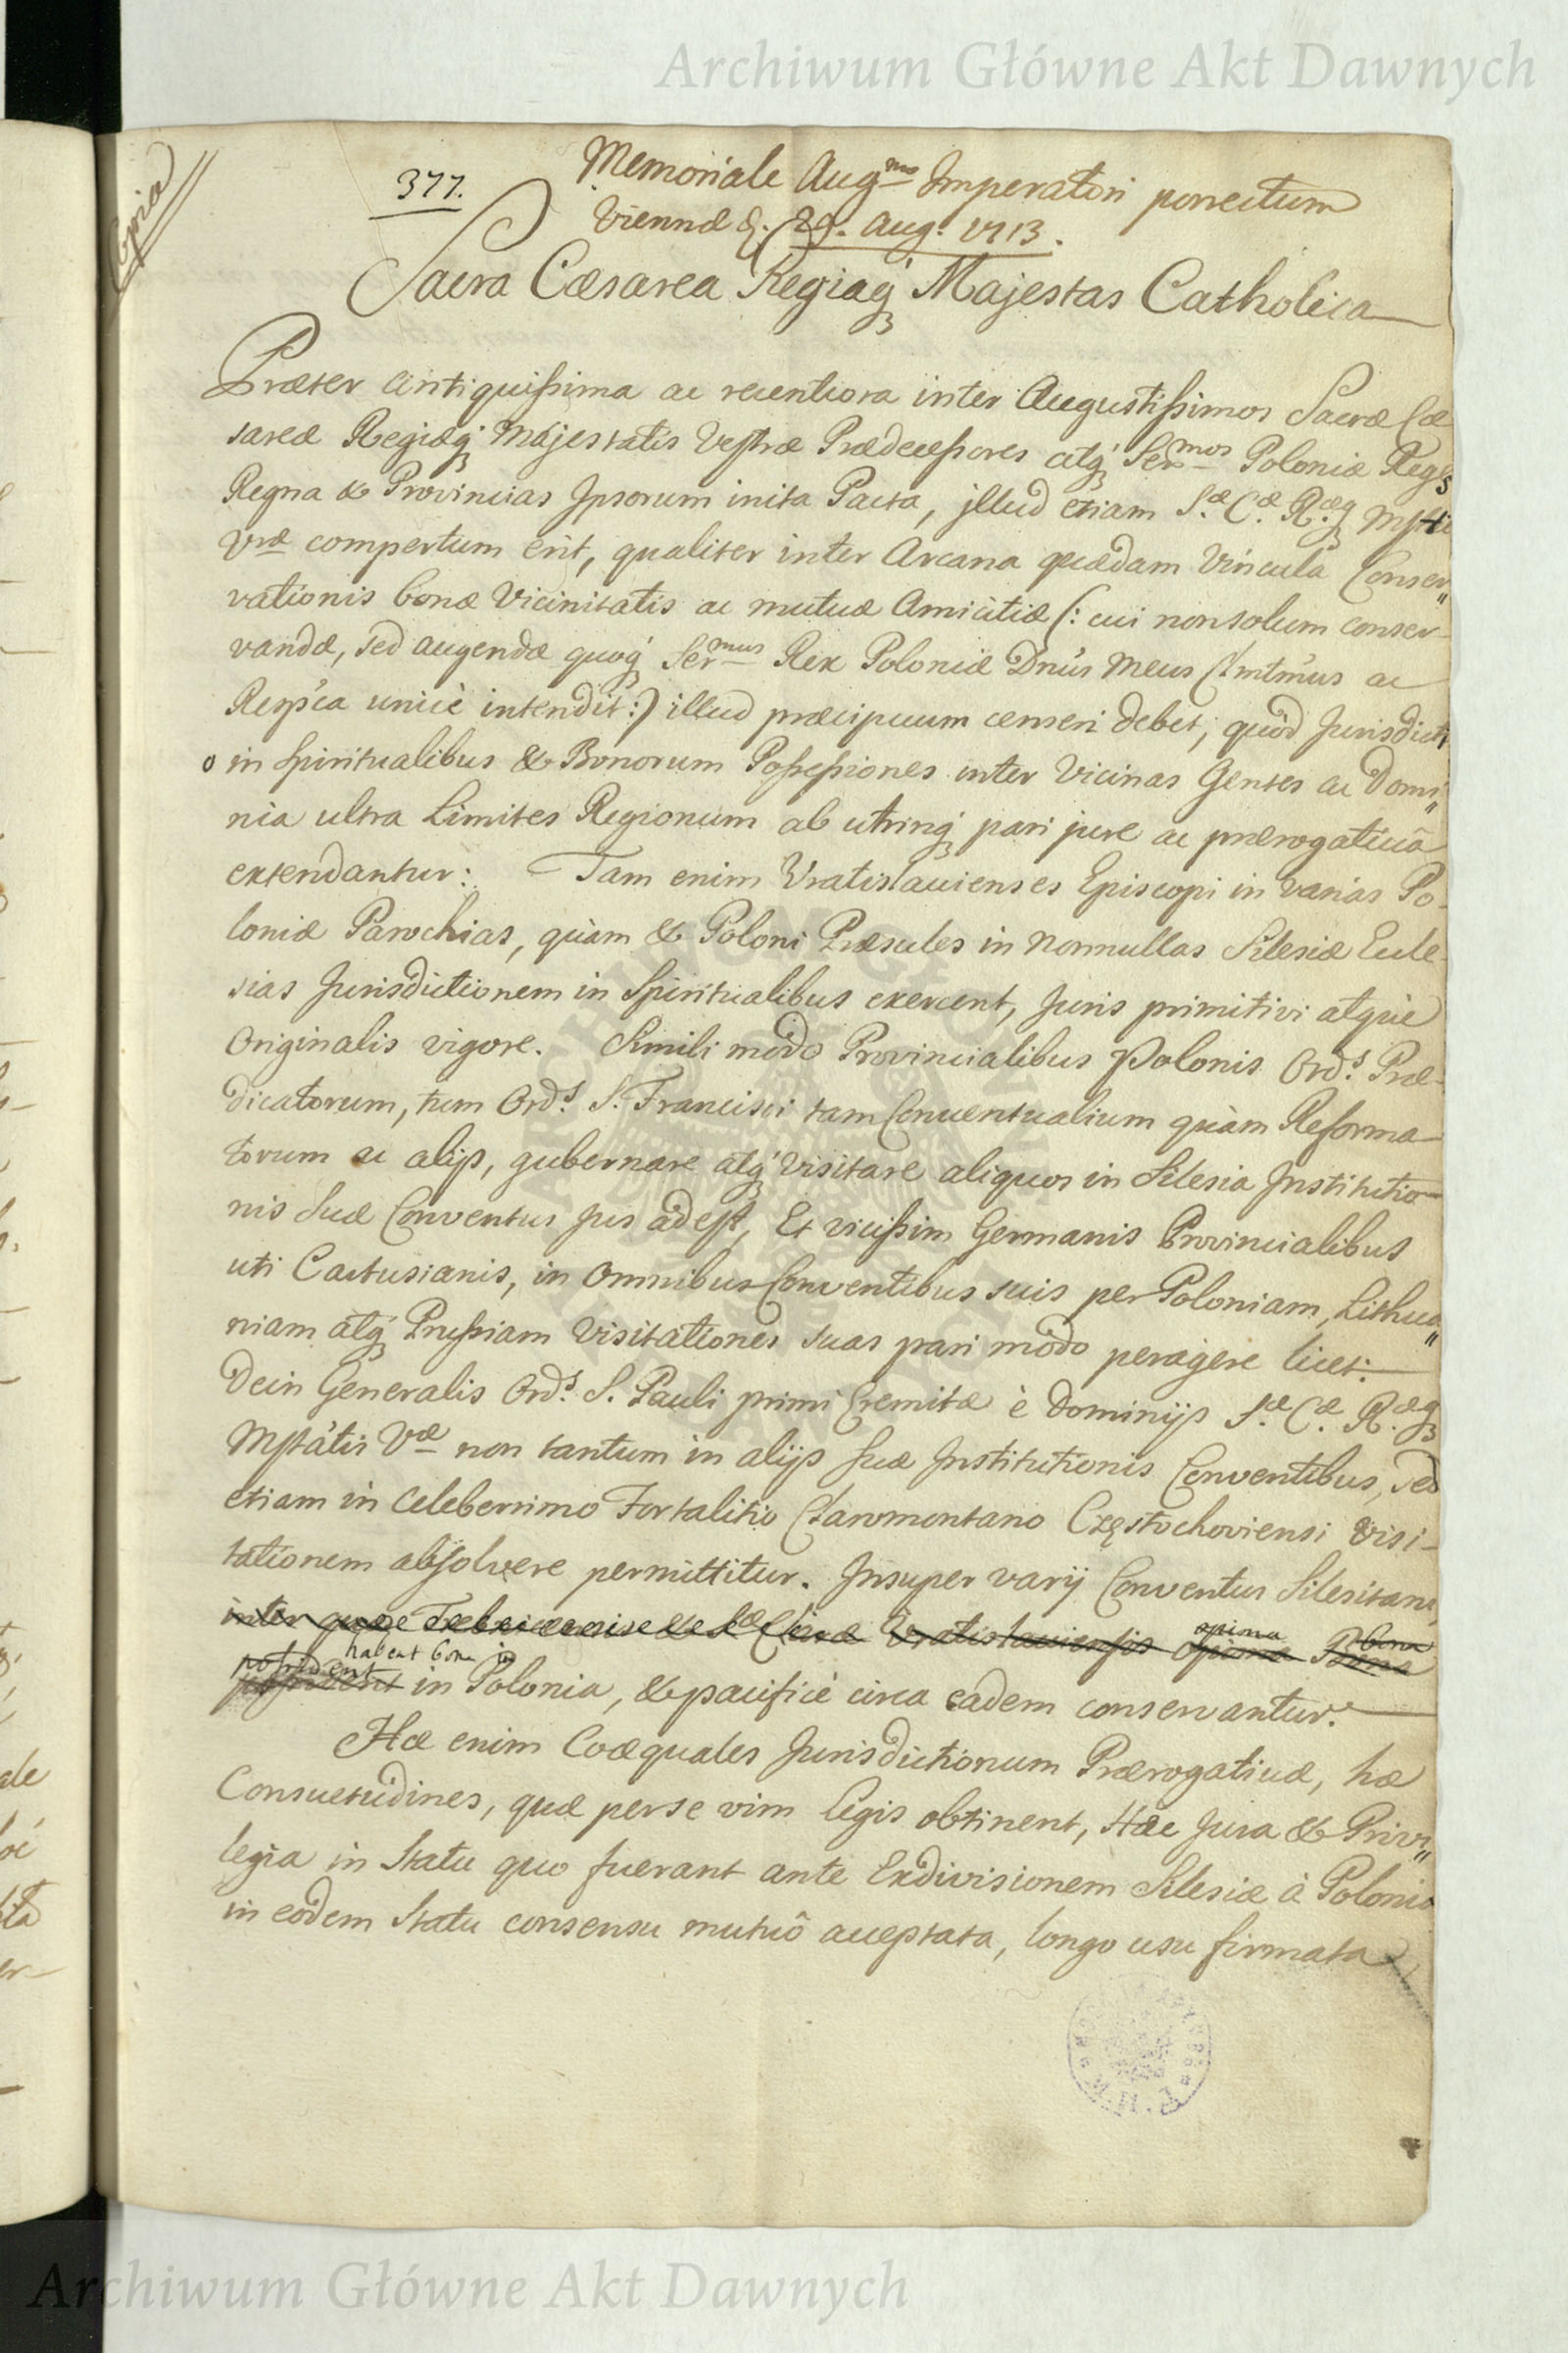 Archiwum Główne Akt Dawnych
Copia
377.
Memoriale Aug.mo Imperatori porrectum
Viennæ d. 29. Aug. 1713.
Sacra Cæsarea Regiaq Majestas Catholica
Præter antiquissima ac recentiora inter Augustissimos Sacræ Cæ
sareæ Regiæq Majestatis Vestræ Prædecessores atq Ser.mos Poloniæ Reges
Regna & Provincias Ipsorum inita Pacta, illud etiam S.æ C.æ R.æq Mstti
Vræ compertum erit, qualiter inter Arcana quædam Vincula Conser„
vationis bonæ Vicinitatis ac mutuæ Amicitiæ (: cui non solum conser-
vandæ, sed augendæ quoq Ser.mus Rex Poloniæ Dnus Meus Clmtmus ac
Respca unicè intendit :) illud præcipuum censeri debet, quòd Jurisdicti
o in Spiritualibus & Bonorum Possessiones inter Vicinas Gentes ac Domi„
nia ultra Limites Regionum ab utrinq pari jure ac prærogativâ
extendantur: Tam enim Vratislavienses Episcopi in varias Po-
loniæ Parochias, quàm & Poloni Præsules in nonnullas Silesiæ Eccle-
sias Jurisdictionem in Spiritualibus exercent, Juris primitivi atque
Originalis vigore. Simili modo Provincialibus Polonis Ord.s Præ-
dicatorum, tum Ord.s S. Francisci tam Conventualium quàm Reforma-
torum ac alijs, gubernare atq visitare aliquos in Silesia Institutio-
nis Suæ Conventus jus adest, Et vicissim Germanis Provincialibus
uti Cartusianis, in Omnibus Conventibus suis per Poloniam, Lithua„
niam atq Prussiam Visitationes suas pari modo peragere licet.
Dein Generalis Ord.s S. Pauli primi Eremitæ è Dominijs S.æ C.æ R.æq
Mstatis Vræ non tantum in alijs suæ Institutionis Conventibus, sed
etiam in Celeberrimo Fortalitio Claromontano Częstochoviensi Visi-
tationem absolvere permittitur. Insuper varij Conventus Silesitani
inter quos Trebnicense & S.æ Claræ Vratislaviensis opima Bona
opima bona
possident habent bona in
possident in Polonia, & pacificè circa eadem conservantur.
Hæ enim Coæquales Jurisdictionum Prærogativæ, hæ
Consuetudines, quæ per se vim legis obtinent, Hæc Jura & Privi„
legia in Statu quo fuerant ante Exdivisionem Silesiæ à Polonia
in eodem Statu consensu mutuô acceptata, longo usu firmata
Archiwum Główne Akt Dawnych